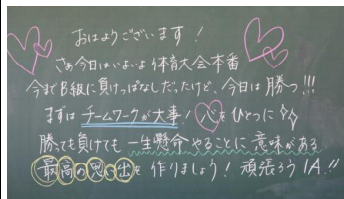 おはようございます!
さぁ今日はいよいよ体育大会本番
今までB組に負けっぱなしだったけど、今日は勝つ!!!
まずはチームワークが大事!心をひとつに
勝っても負けても一生懸命やることに意味がある
最高の思い出を作りましょう!頑張ろう1A!!